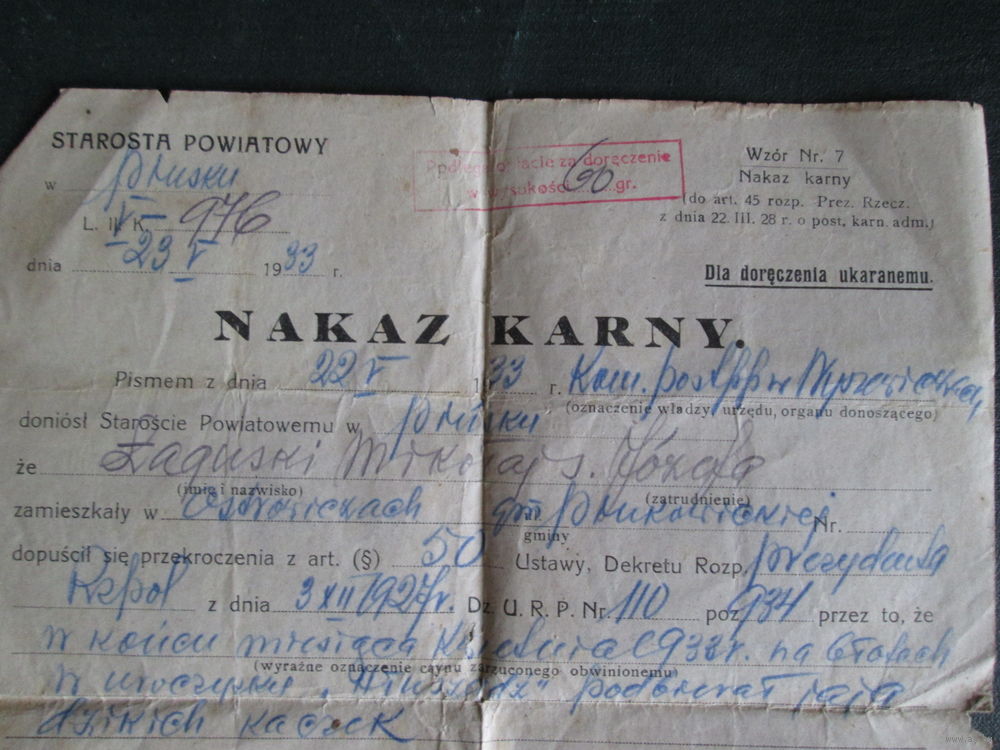 STAROSTA POWIATOWY
w Prusku
L. II K. 976
dnia 23 V 1933 r.
za doręczenie
w wysokości 60 gr.
Wzór Nr. 7
Nakaz karny
(do art. 45 rozp. Prez. Rzecz.
z dnia 22. III. 28 r. o post. karn. adm.)
Dla doręczenia ukaranemu.
NAKAZ KARNY.
Pismem z dnia 22 V 1933 r. Kom. post. P.P. w
(oznaczenie władzy, urzędu, organu donoszącego)
doniósł Staroście Powiatowemu w Prusku
że Łaguski Mikołaj s. Józefa
(imię i nazwisko) (zatrudnienie)
zamieszkały w Ostrowiczach gm. Nr.
gminy
dopuścił się przekroczenia z art. (§) 50 Ustawy, Dekretu Rozp. Prezydenta
Rzpol z dnia 3 XII 1927 r. Dz. U. R. P. Nr. 110 poz. 934 przez to, że
w końcu miesiąca kwietnia 1933 r. na błotach
(wyraźne oznaczenie czynu zarzuconego obwinionemu)
w uroczysku podbierał jaja
dzikich kaczek